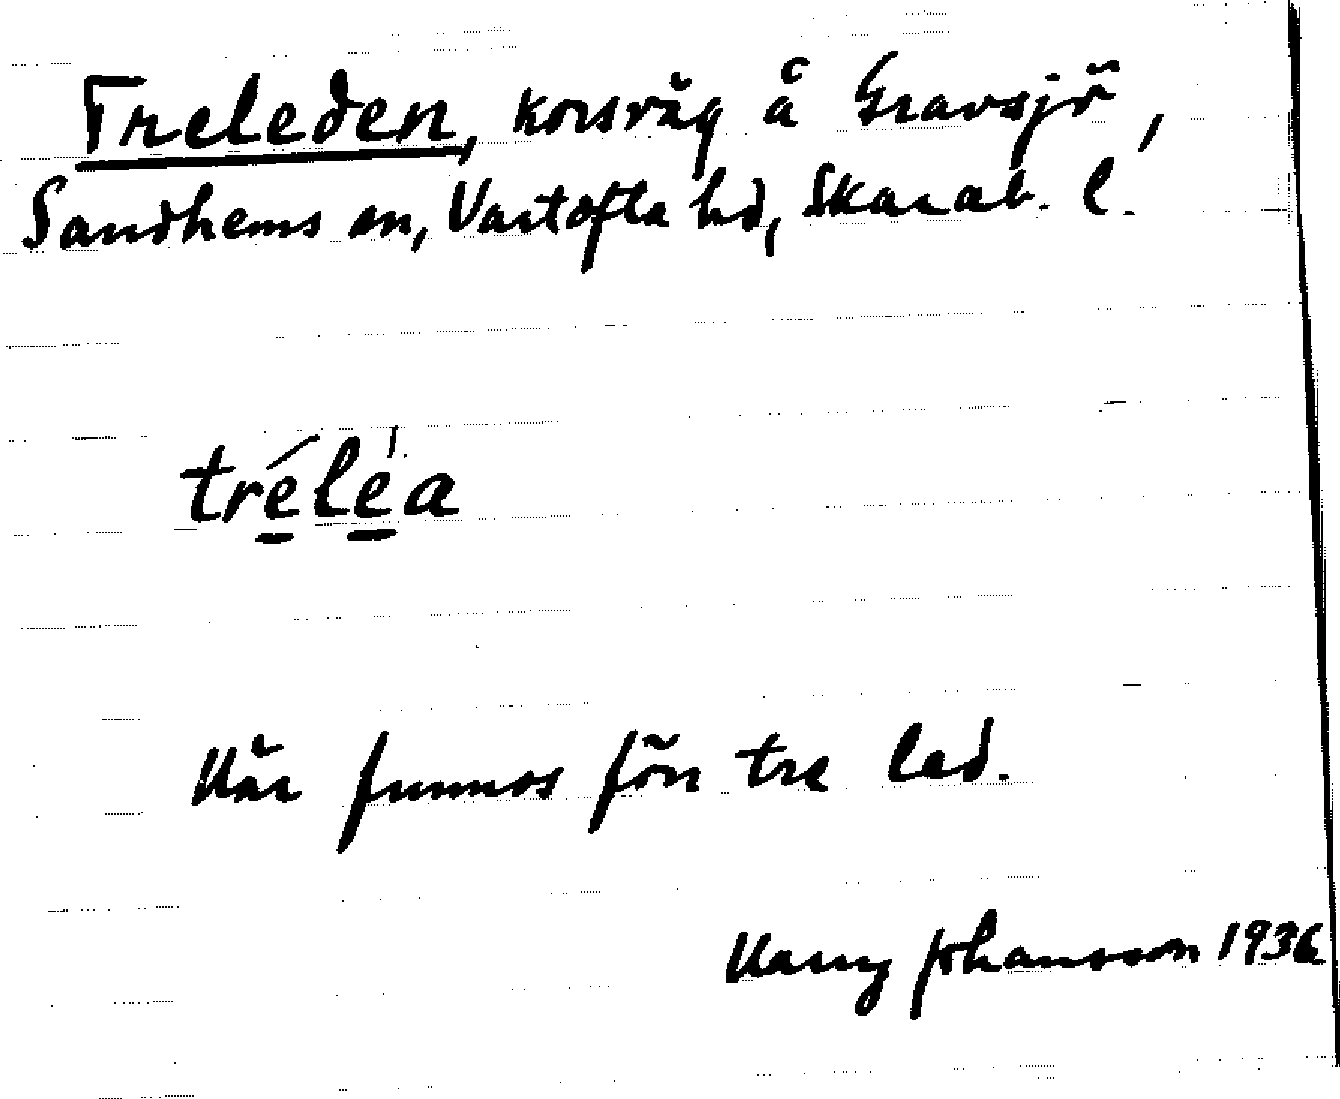 Treleden, korsväg å Gravsjö,
Sandhems sn, Vartofta hd, Skarab. l.
tréle̍a
Här funnos förr tre led.
Harry Johansson 1936